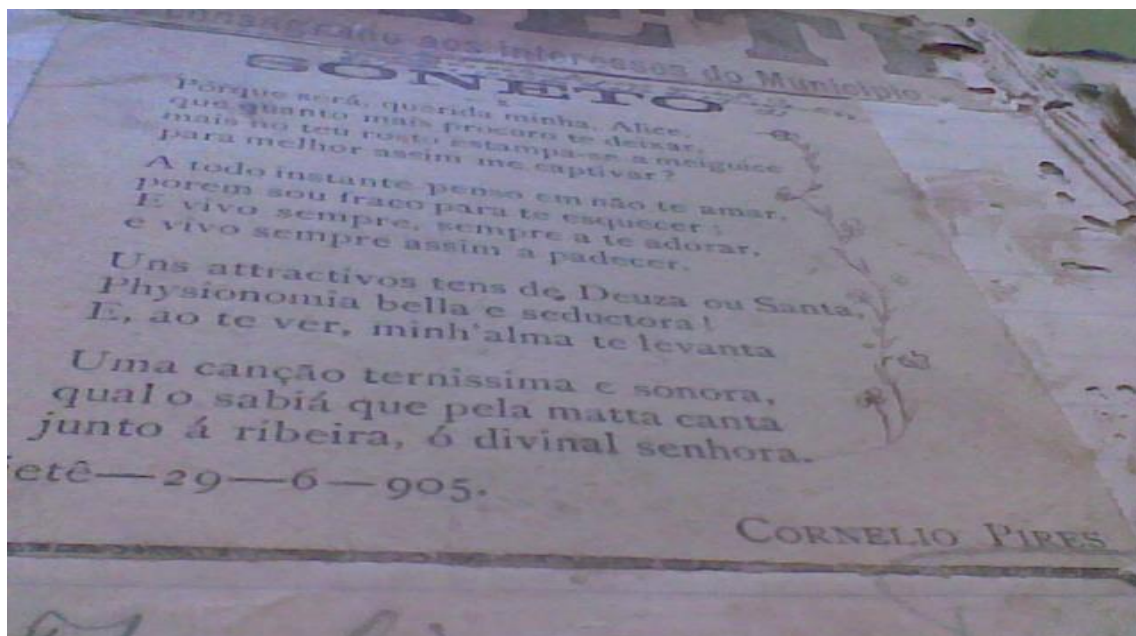 Consagrado aos interesses do Municipio
SONETO
Porque será, querida minha, Alice,
que quanto mais procuro te deixar,
mais no teu rosto estampa-se a meiguice
para melhor assim me captivar?
A todo instante penso em não te amar,
porem sou fraco para te esquecer;
E vivo sempre, sempre a te adorar,
e vivo sempre assim a padecer.
Uns attractivos tens de Deuza ou Santa,
Physionomia bella e seductora!
E, ao te ver, minh'alma te levanta
Uma canção ternissima e sonora,
qual o sabiá que pela matta canta
junto á ribeira, ó divinal senhora.
etê—29—6—905.
CORNELIO PIRES